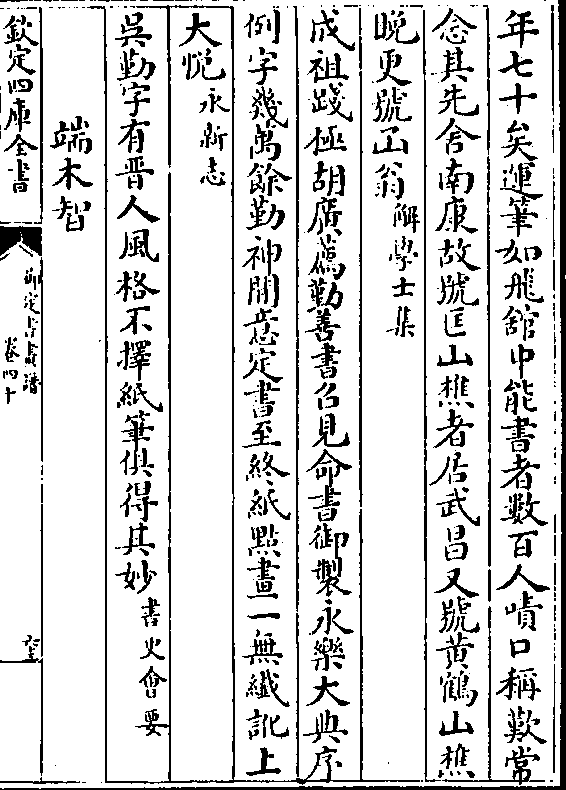 年七十矣運筆如飛舘中能書者數百人嘖口稱歎常
念其先舍南康故號匡山樵者居武昌又號黄鶴山樵
晚更號山翁解學士集
成祖踐極胡廣薦勤善書召見命書御製永樂大典序
例字幾萬餘勤神閒意定書至終紙點畫一無纖訛上
大悦永新志
吳勤字有晉人風格不擇紙筆俱得其妙書史會要
端木智
欽定四庫全書
御定書畫譜
卷四十